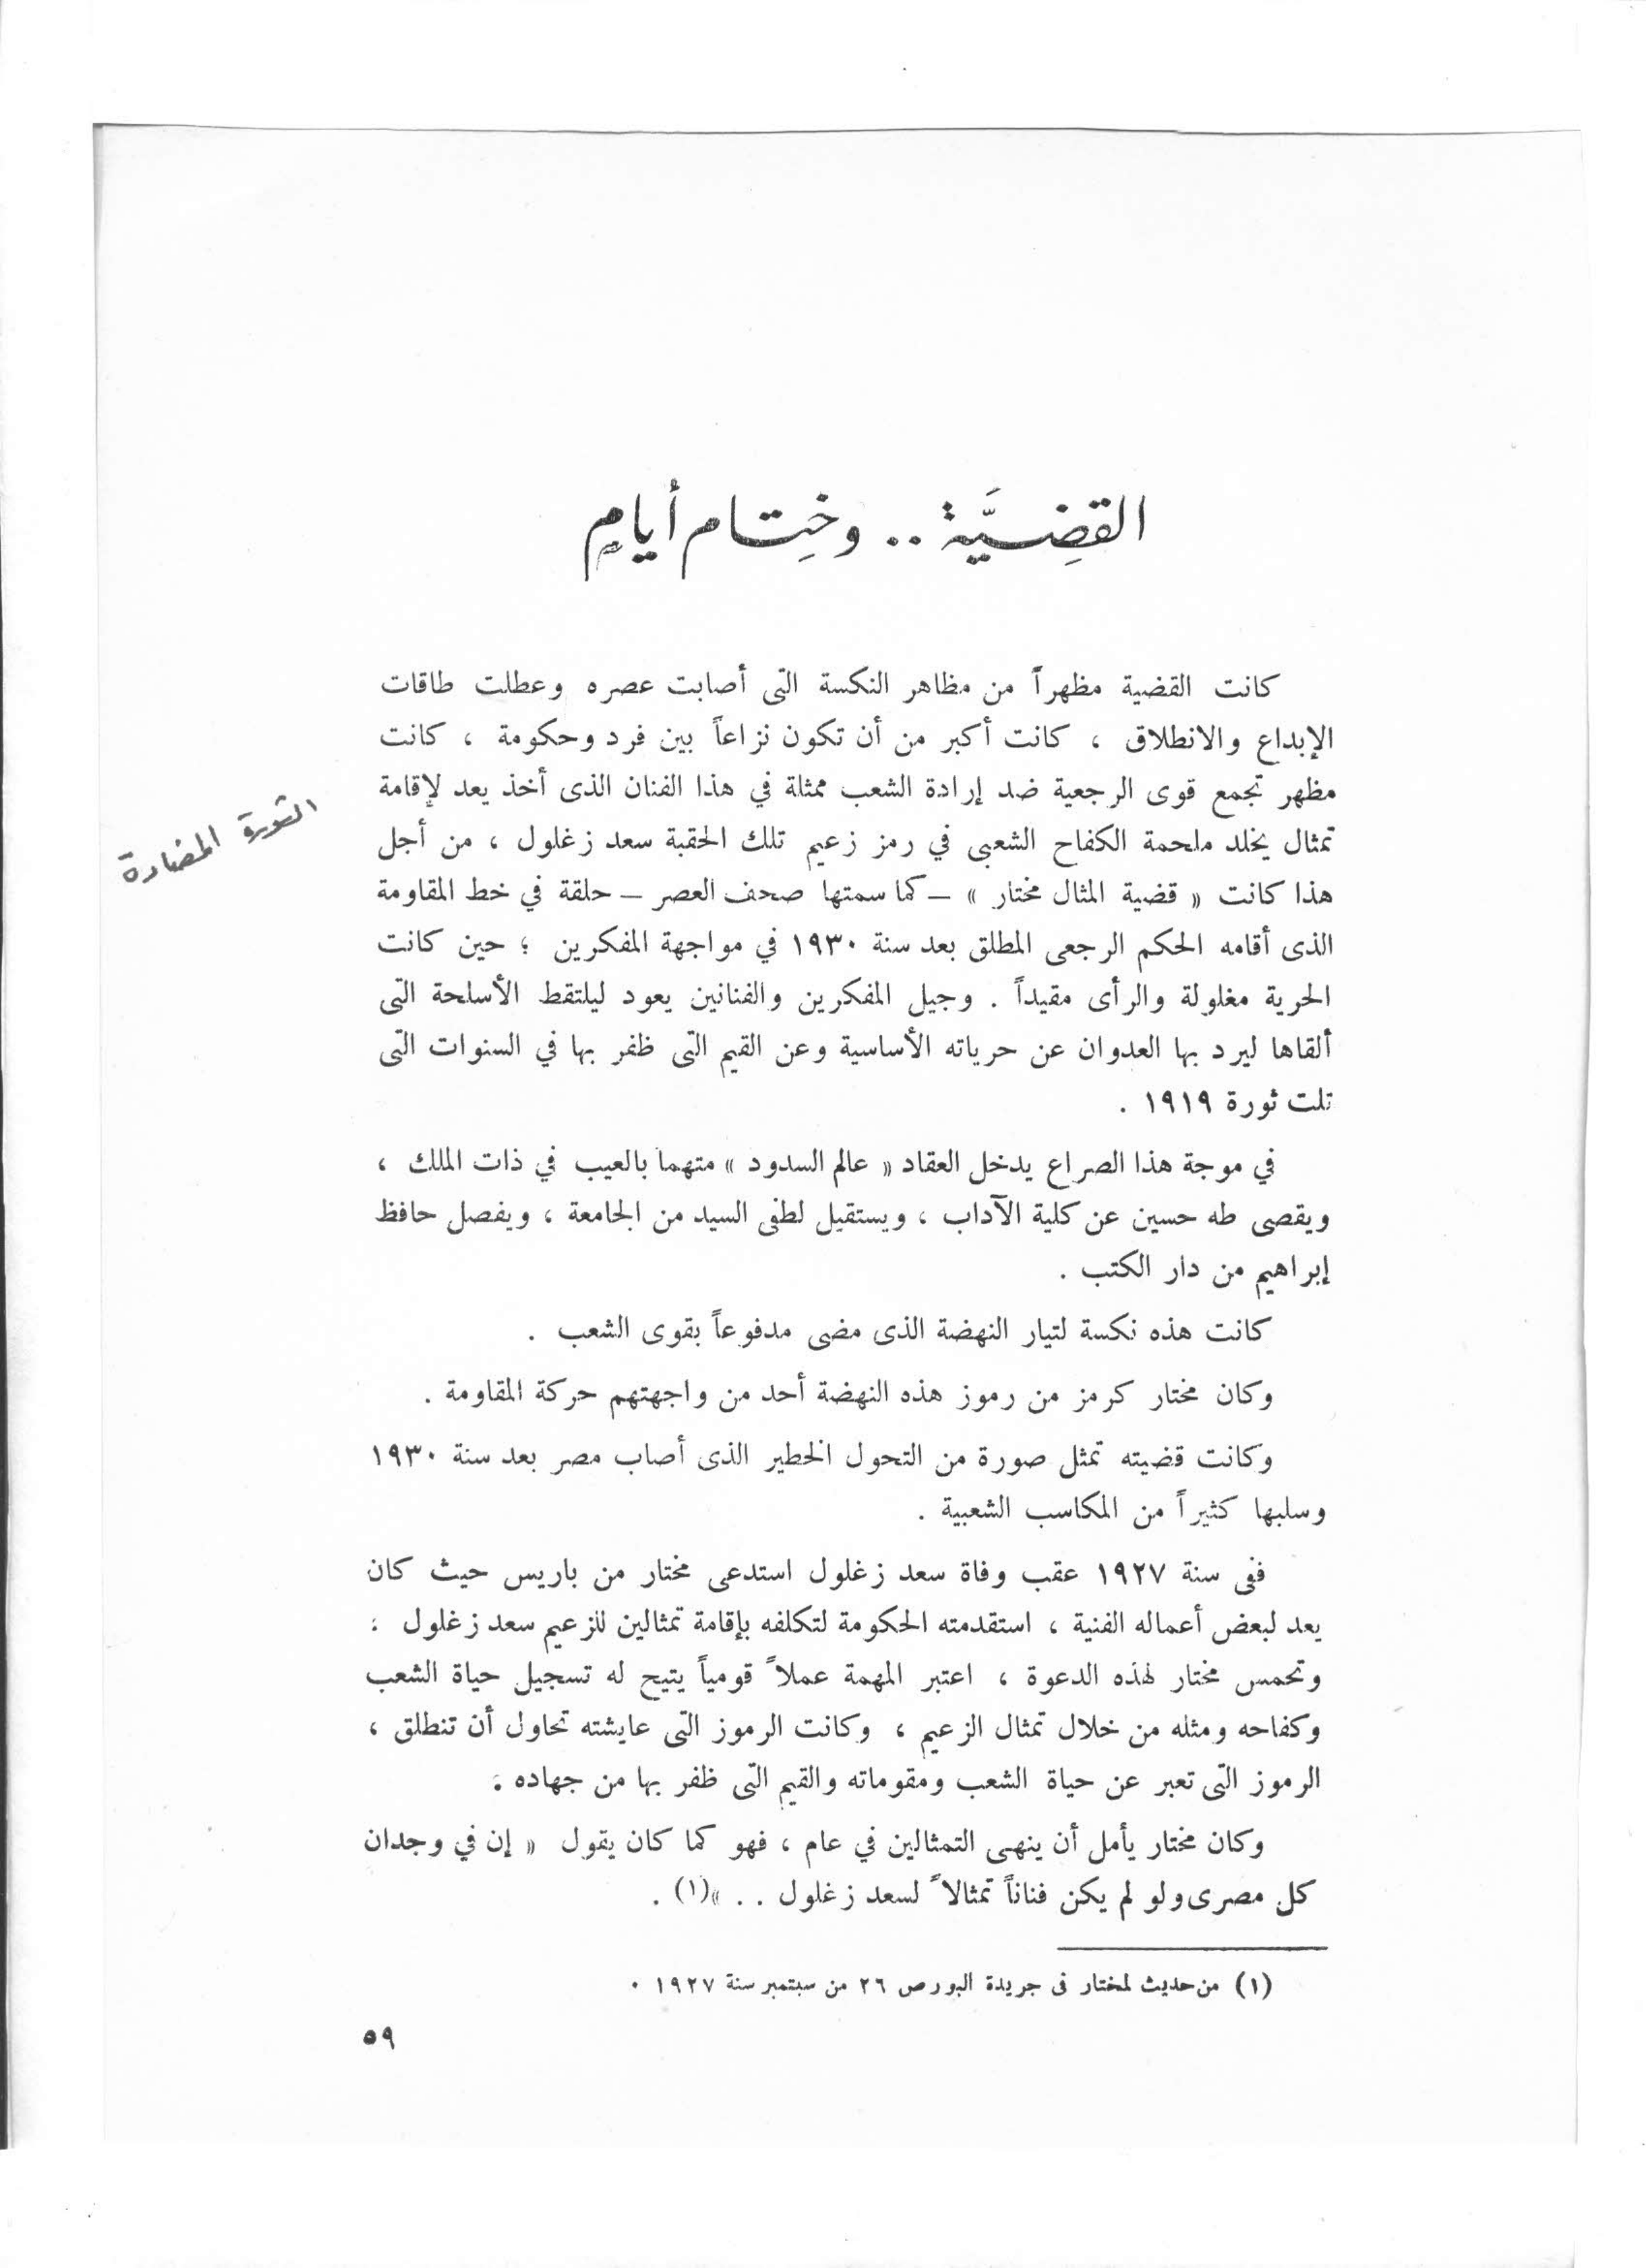 القضِسيَّة .. وخِتام أيامٍ
كانت القضية مظهراً من مظاهر النكسة التى أصابت عصره وعطلت طاقات
الإبداع والانطلاق ، كانت أكبر من أن تكون نزاعاً بين فرد وحكومة ، كانت
مظهر تجمع قوى الرجعية ضد إرادة الشعب ممثلة في هذا الفنان الذى أخذ يعد لإقامة
تمثال يخلد ملحمة الكفاح الشعبى في رمز زعيم تلك الحقبة سعد زغلول ، من أجل
هذا كانت « قضية المثال مختار » – كما سمتها صحف العصر – حلقة في خط المقاومة
الذى أقامه الحكم الرجعى المطلق بعد سنة ١٩٣٠ في مواجهة المفكرين ؛ حين كانت
الحرية مغلولة والرأى مقيداً . وجيل المفكرين والفنانين يعود ليلتقط الأسلحة التى
ألقاها ليرد بها العدوان عن حرياته الأساسية وعن القيم التى ظفر بها في السنوات التى
تلت ثورة ١٩١٩ .
الثورة المضادة
في موجة هذا الصراع يدخل العقاد « عالم السدود » متهما بالعيب في ذات الملك ،
ويقصى طه حسين عن كلية الآداب ، ويستقيل لطفى السيد من الجامعة ، ويفصل حافظ
إبراهيم من دار الكتب .
كانت هذه نكسة لتيار النهضة الذى مضى مدفوعاً بقوى الشعب .
وكان مختار كرمز من رموز هذه النهضة أحد من واجهتهم حركة المقاومة .
وكانت قضيته تمثل صورة من التحول الخطير الذى أصاب مصر بعد سنة ١٩٣٠
وسلبها كثيراً من المكاسب الشعبية .
ففى سنة ١٩٢٧ عقب وفاة سعد زغلول استدعى مختار من باريس حيث كان
يعد لبعض أعماله الفنية ، استقدمته الحكومة لتكلفه بإقامة تمثالين للزعيم سعد زغلول :
وتحمس مختار لهذه الدعوة ، اعتبر المهمة عملاً قومياً يتيح له تسجيل حياة الشعب
وكفاحه ومثله من خلال تمثال الزعيم ، وكانت الرموز التى عايشته تحاول أن تنطلق ،
الرموز التى تعبر عن حياة الشعب ومقوماته والقيم التى ظفر بها من جهاده .
وكان مختار يأمل أن ينهى التمثالين في عام ، فهو كما كان يقول « إن في وجدان
كل مصرى ولو لم يكن فناناً تمثالاً لسعد زغلول . . »(١) .
(١) من حديث لمختار فى جريدة البورص ٢٦ من سبتمبر سنة ١٩٢٧ .
٥٩